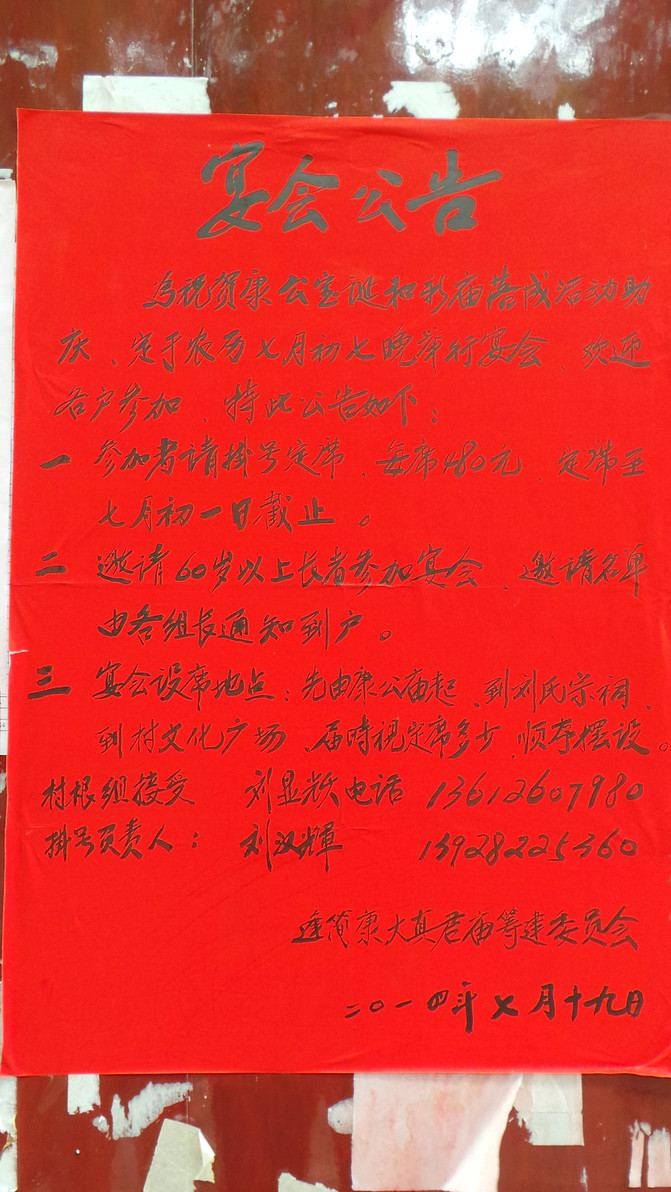 宴会公告
为祝贺康公宝诞和新庙落成活动助
庆、定于农历七月初七晚举行宴会、欢迎
各户参加、特此公告如下：
一 参加者请掛号定席、每席480元、定席至
七月初一日截止。
二 邀请60岁以上长者参加宴会、邀请名单
由各组长通知到户。
三 宴会设席地点：先由康公庙起、到刘氏宗祠、
到村文化广场、届时视定席多少、顺序摆设。
村根组接受 刘显 电话 13612607980
掛号负责人： 刘汉輝 13928225360
逢简康大真君庙筹建委员会
二〇一四年七月十九日